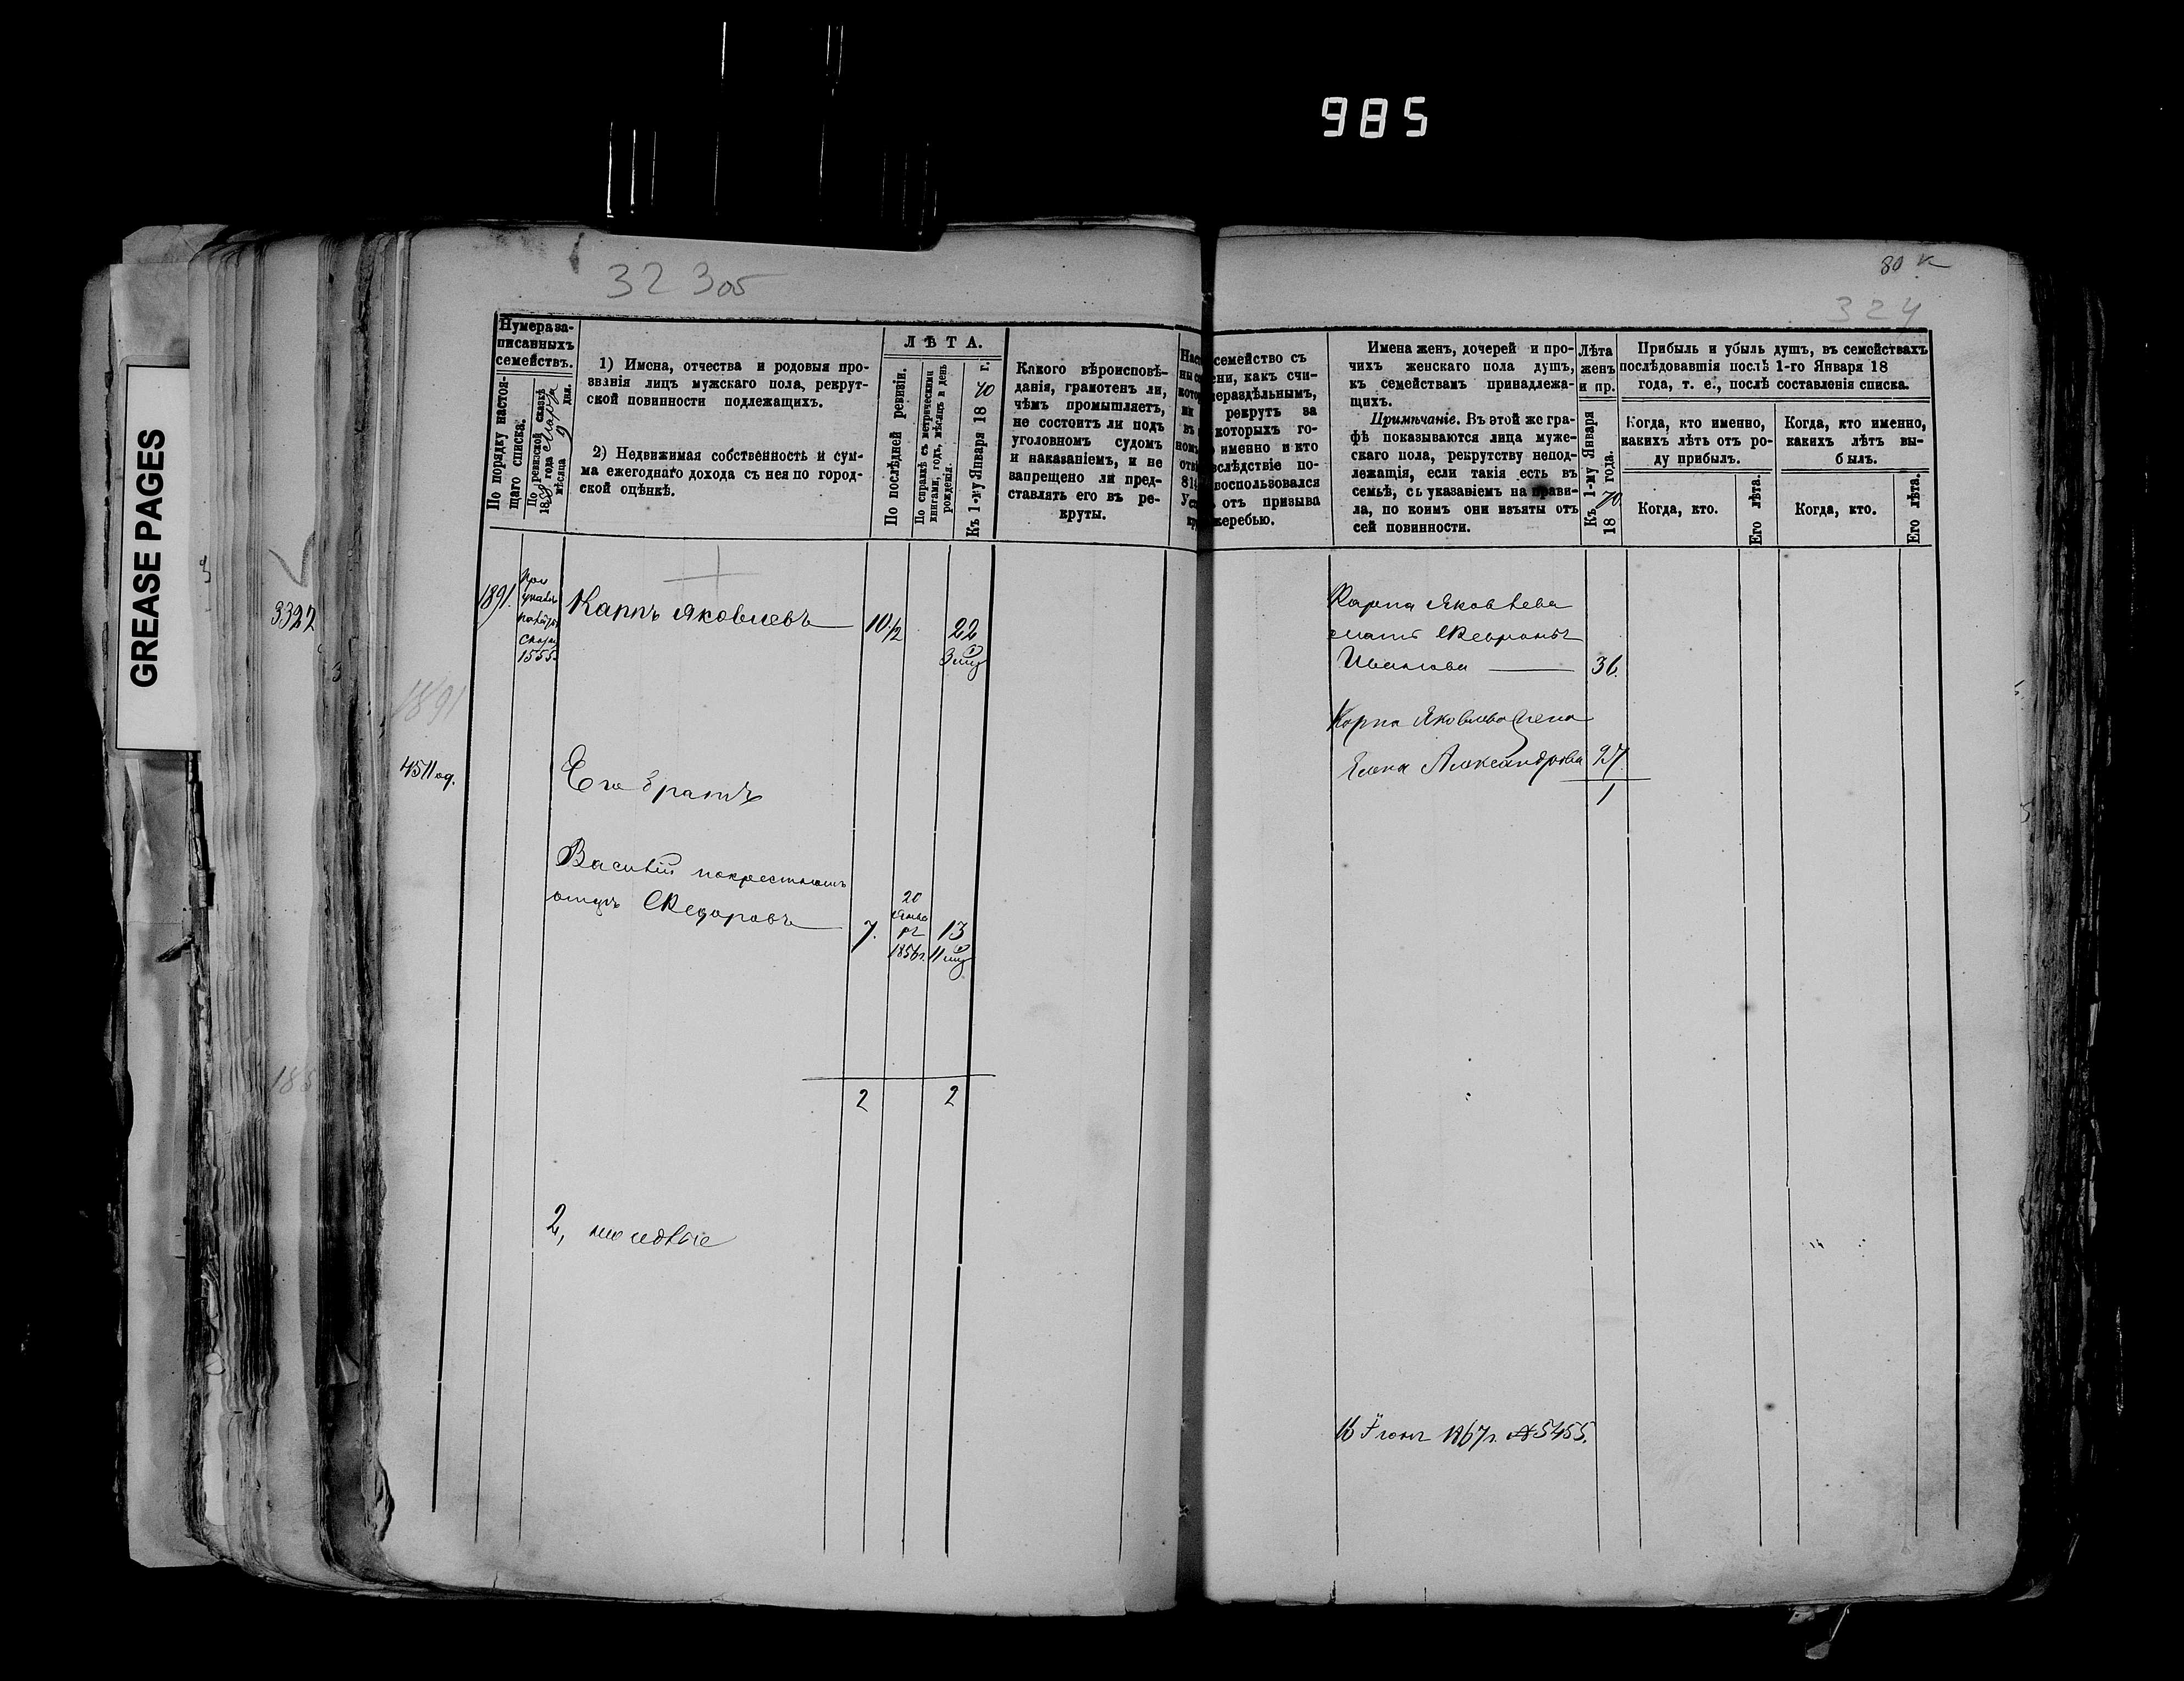 985
GREASE PAGES
32 305
80
324
Нумера за-
писанныхъ
семействъ.
По порядку настоя-
щаго списка.
По ревизской сказкѣ
18 года Марта
мѣсяца 9 дня.
1) Имена, отчества и родовыя про-
званія лицъ мужскаго пола, рекрут-
ской повинности подлежащихъ.
2) Недвижимая собственность и сум-
ма ежегоднаго дохода съ нея по город-
ской оцѣнкѣ.
ЛѢТА.
По послѣдней ревизіи.
По справкѣ съ метрическими
книгами, годъ, мѣсяцъ и день
рожденія.
Къ 1-му Января 1870 г.
Какого вѣроисповѣ-
данія, грамотенъ ли,
чѣмъ промышляетъ,
не состоитъ ли подъ
уголовномъ судомъ
и наказаніемъ, и не
запрещено ли пред-
ставлять его въ ре-
круты.
семейство съ
ени, какъ счи-
нераздѣльнымъ,
рекрутъ за
которыхъ го-
именно и кто
вслѣдствіе по-
воспользовался
отъ призыва
жеребью.
Имена женъ, дочерей и про-
чихъ женскаго пола душъ,
къ семействамъ принадлежа-
щихъ.
Примѣчаніе. Въ этой же гра-
фѣ показываются лица муже-
скаго пола, рекрутству непод-
лежащія, если такія есть въ
семьѣ, съ указаніемъ на прави-
ла, по коимъ они изъяты отъ
сей повинности.
Лѣта
женъ
и пр.
Къ 1-му Января
1870 года.
Прибыль и убыль душъ, въ семействахъ
послѣдовавшія послѣ 1-го Января 18
года, т. е., послѣ составленія списка.
Когда, кто именно,
какихъ лѣтъ отъ ро-
ду прибылъ.
Когда, кто именно,
какихъ лѣтъ вы-
былъ.
Когда, кто.
Его лѣта.
Когда, кто.
Его лѣта.
3322
1891.
1555.
Карпъ Яковлевъ
10 1/2
22
3 мц
Карпа Яковлева
мать Февронья
Иванова
36.
1891
Карпа Яковлева жена
Елена Александрова
27.
1
4511 од.
Его братъ
Василій по крестномъ
отцѣ Федоровъ
7.
20
Янва
ря
1856 г.
13
11 мц
2
2
185
2, молодые
16 Іюня 1867 г. № 5455.